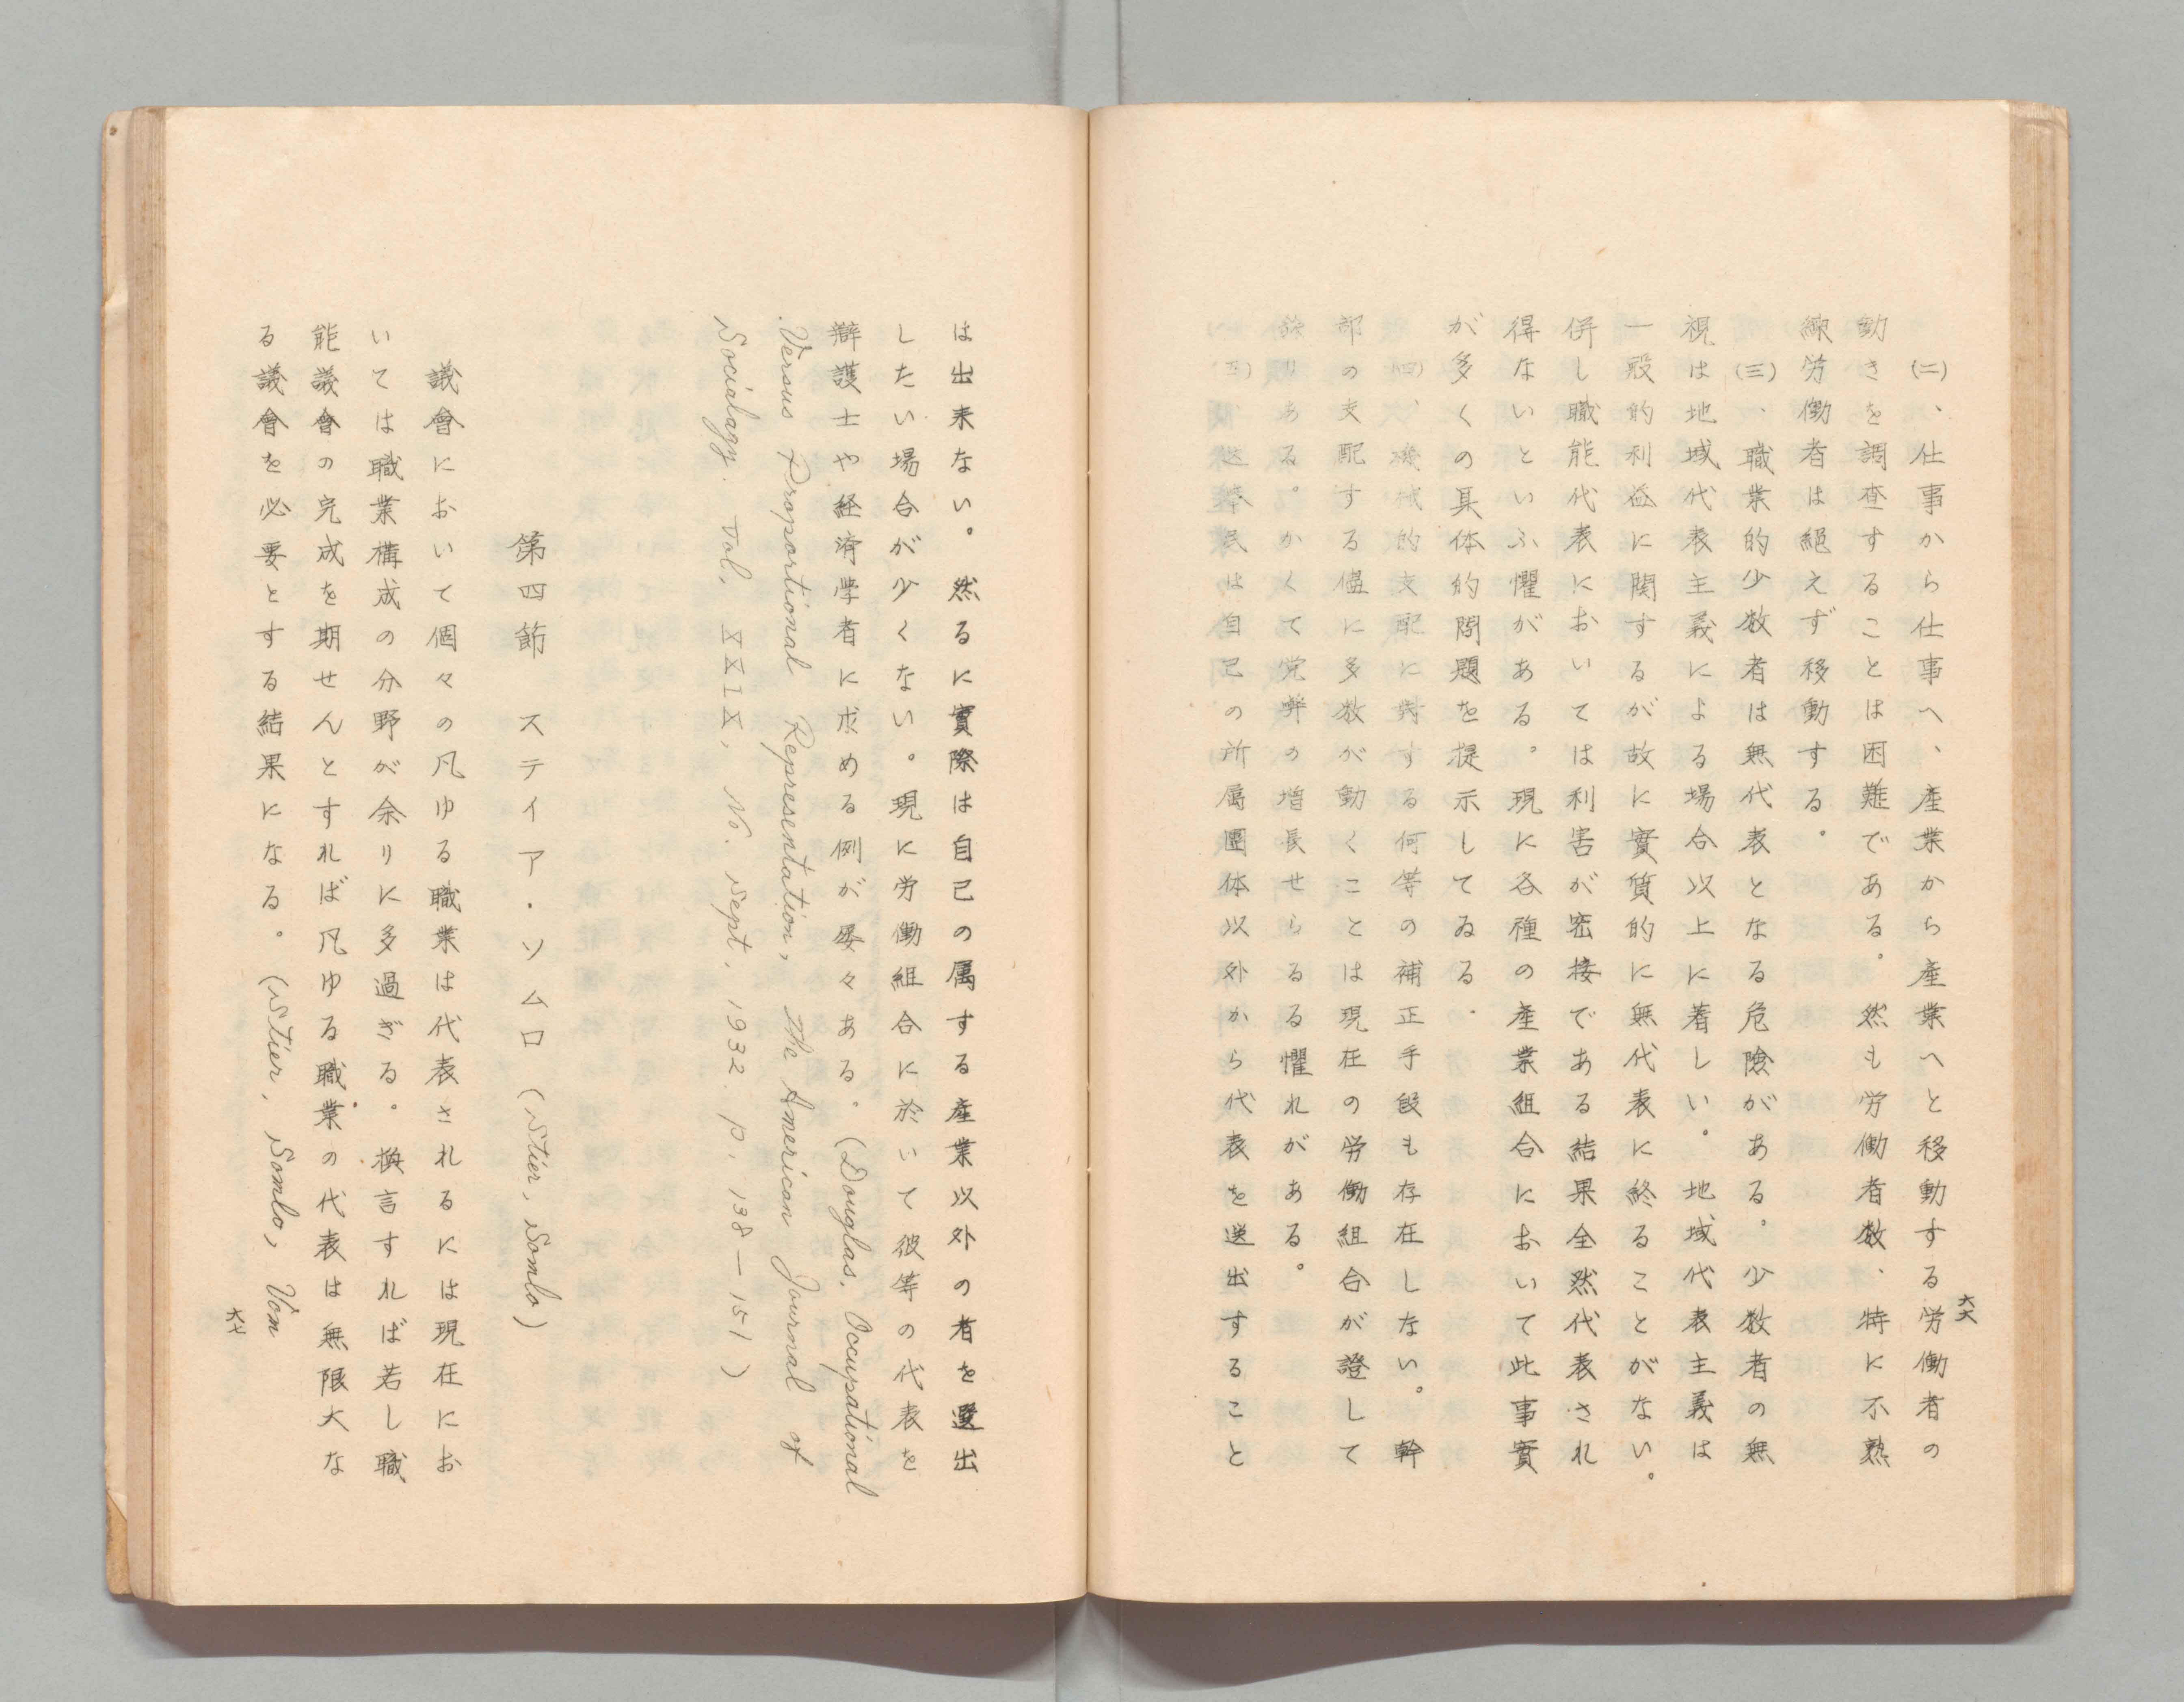 (二)、仕事から仕事へ、産業から産業へと移動する労働者の
動きを調査することは困難である。然も労働者数、特に不熟
練労働者は絕えず移動する。
(三)、職業的少数者は無代表となる危險がある。少数者の無
視は地域代表主義による場合以上に着しい。地域代表主義は
一般的利益に関するが故に實質的に無代表に終ることがない。
併し職能代表においては利害が密接である結果全然代表され
得ないといふ懼がある。現に各種の産業組合において此事實
が多くの具体的問題を提示してゐる.
(四)、機械的支配に対する何等の補正手段も存在しない。幹
部の支配する儘に多数が動くことは現在の労働組合が證して
餘りある。かくて党弊の増長せらるる懼れがある。
(五)、選挙民は自己の所属團体以外から代表を送出すること
六六
は出来ない。然るに實際は自己の属する産業以外の者を選出
したい場合が少くない。現に労働組合に於いて彼等の代表を
辯護士や経済学者に求める例が屡々ある。(Douglas, Occupational
Versus Proportional Representation, The American Journal of
Socialagy. Vol, XXIX, No. Sept, 1932. p, 138—151)
第四節 ステイア・ソムロ (Stier, Somlo)
議會において個々の凡ゆる職業は代表されるには現在にお
いては職業構成の分野が余りに多過ぎる。換言すれば若し職
能議會の完成を期せんとすれば凡ゆる職業の代表は無限大な
る議會を必要とする結果になる。(Stier, Somlo, Vom
六七